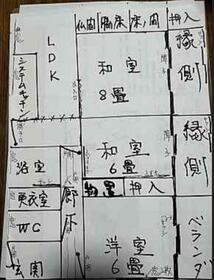 仏間
床ノ間
押入
LDK
システムキッチン
和室
8畳
縁側
和室
6畳
縁側
浴室
廊下
物置
押入
更衣室
WC
洋室
6畳
ベランダ
玄関